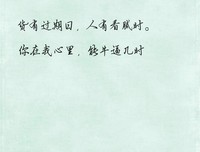 货有过期日，人有看腻时。
你在我心里，能牛逼几时